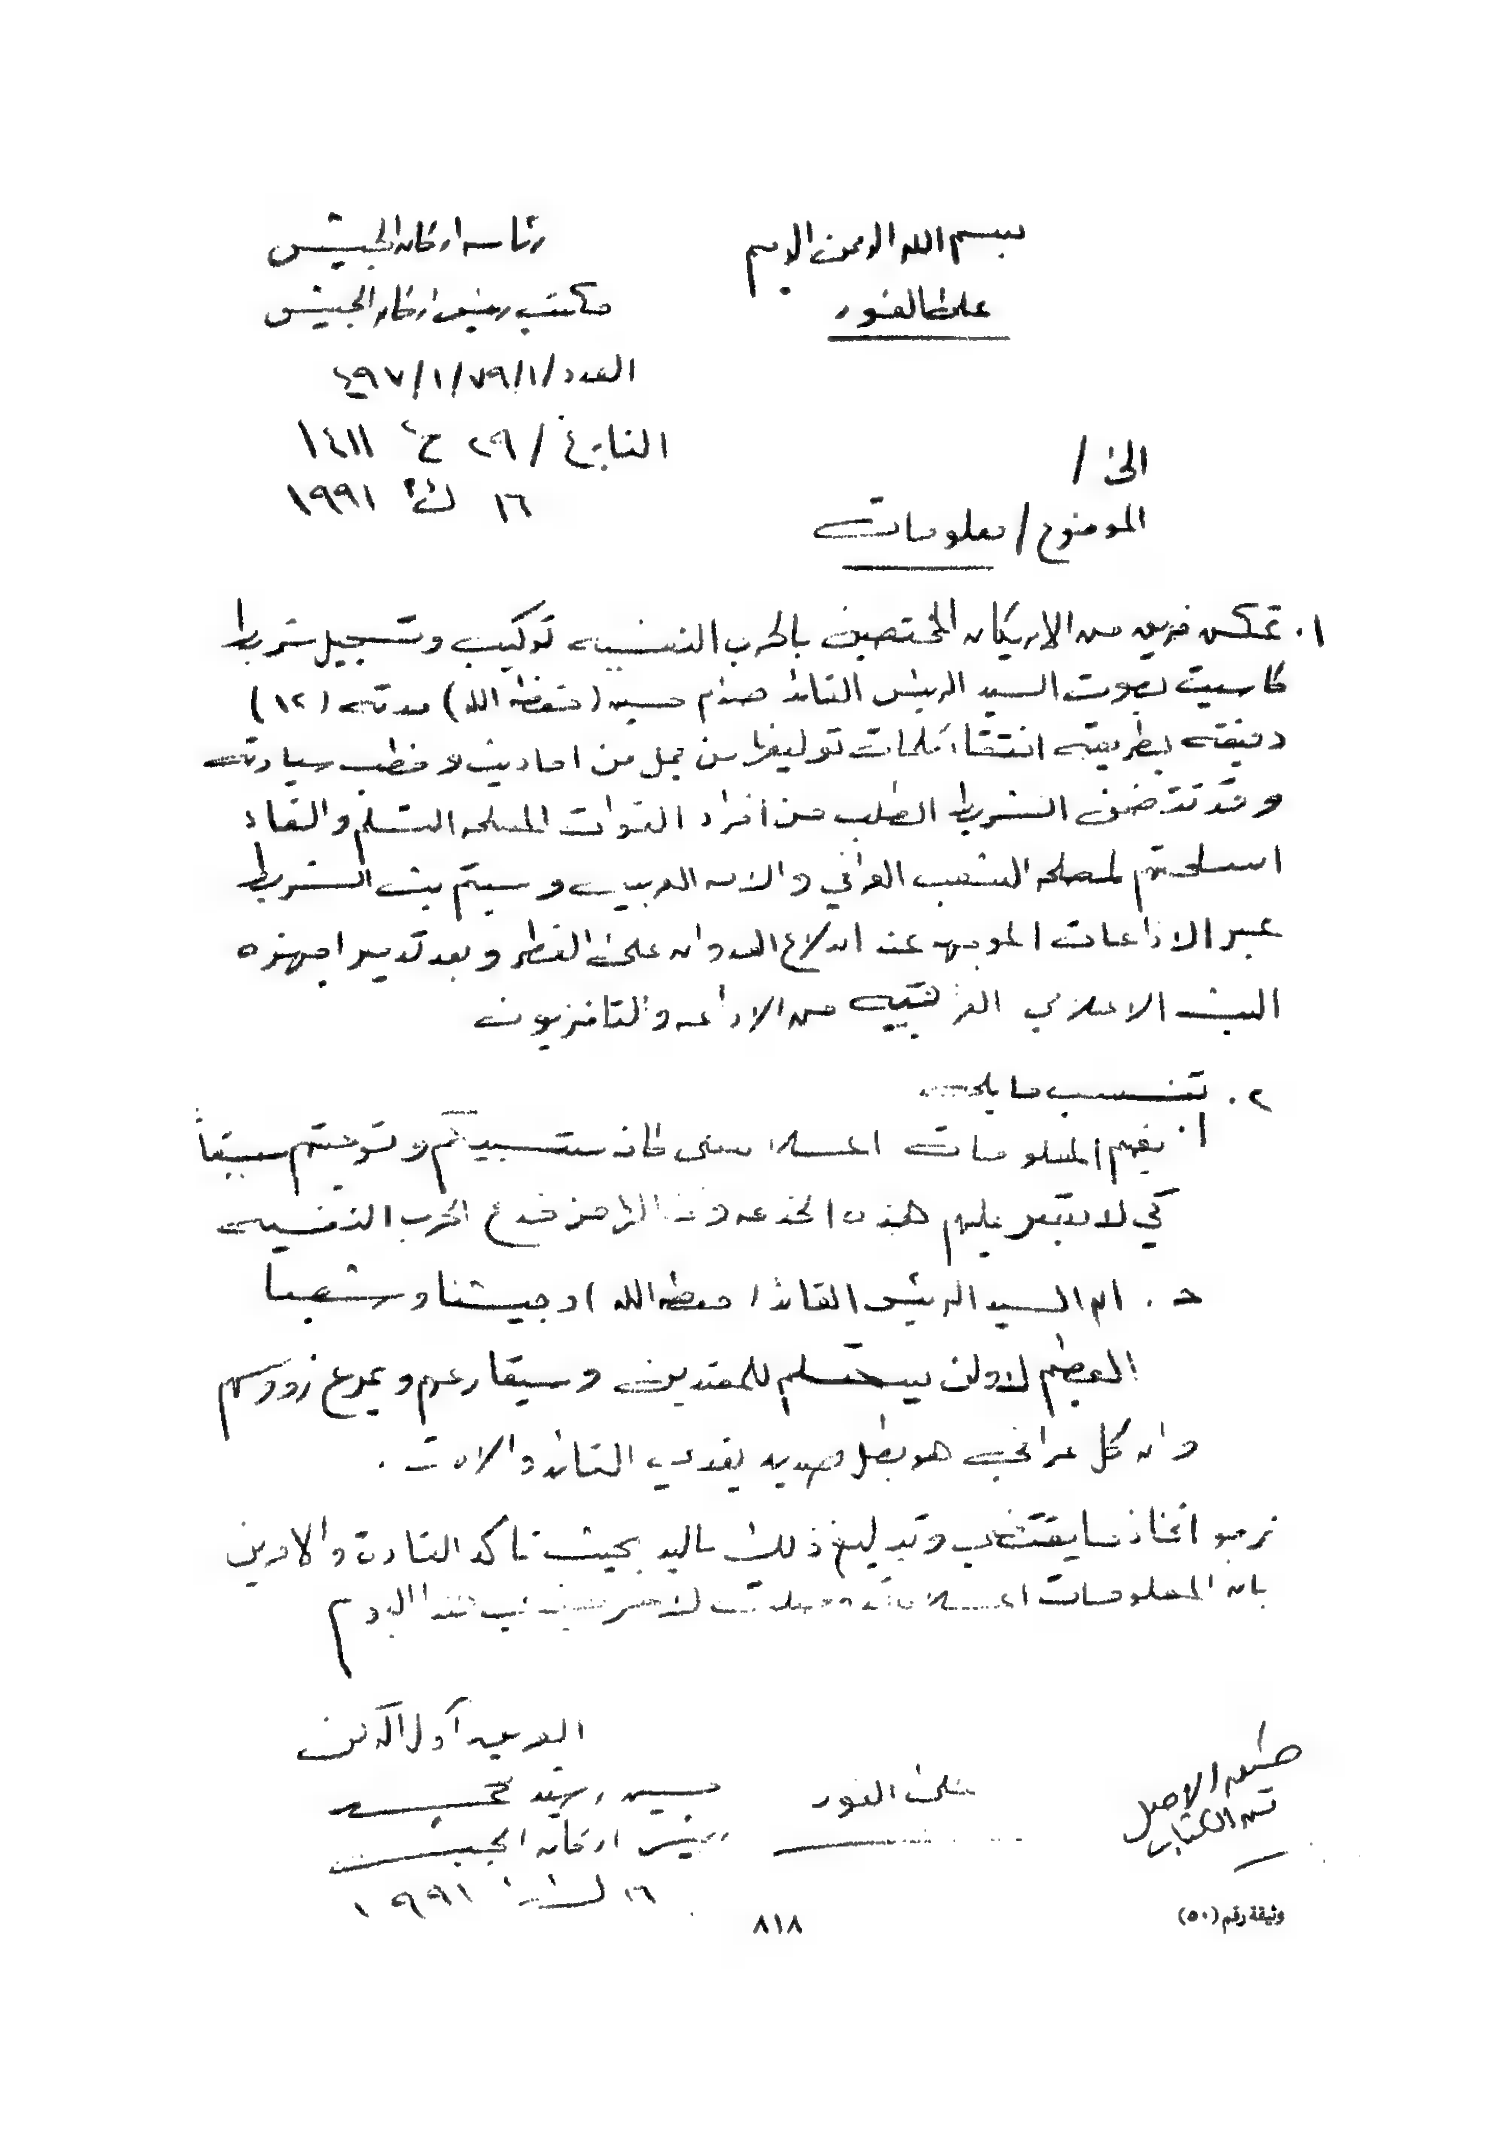 بسم الله الرحمن الرحيم
على الفور
رئاسة اركان الجيش
مكتب رئيس اركان الجيش
العدد/ ٧٩/١/١/٤٩٧
التاريخ / ٢٩ ج٢ ١٤١١
١٦ ك٢ ١٩٩١
الى /
الموضوع / معلومات
١. تمكن فريق من الامريكان المختصين بالحرب النفسيه تركيب وتسجيل شريط
كاسيت بصوت السيد الرئيس القائد صدام حسين (حفظه الله) مدته (١٢)
دقيقه بطريقه انتقاء كلمات توليفها من جمل من احاديث وخطب سيادته
وقد تضمن الشريط الطلب من أفراد القوات المسلحه التسلم والقاء
اسلحتهم لمصلحه الشعب العراقي والامه العربيه وسيتم بث الشريط
عبر الاذاعات الموجهه عند اندلاع العدوان على القطر وبعد تدمير اجهزه
البث الاعلامي العراقيه من الاذاعه والتلفزيون
٢. تنسب مايلي
أ. يفهم المعلومات اعلاه كافه منتسبيكم وتوعيتهم مسبقاً
كي لا تعبر عليهم هذه الخدعه خدع الحرب النفسيه
ب. ان السيد الرئيس القائد (حفظه الله) وجيشنا وشعبنا
العظيم لا ولن يستسلم للمعتدين وسيقارعهم ويمرغ رؤوسهم
وان كل عراقي هو بطل صنديد يفدي القائد والامة .
نرجو اتخاذ مايقتضي وتبليغ ذلك باليد بحيث تأكد القادة والامرين
بان المعلومات اعلاه قد وصلت لاخر في هذا اليوم
الفريق اول الركن
حسين رشيد محمد
رئيس اركان الجيش
١٦ ك٢ ١٩٩١
على الفور
طبق الاصل
وثيقة رقم (٥٠)
٨١٨